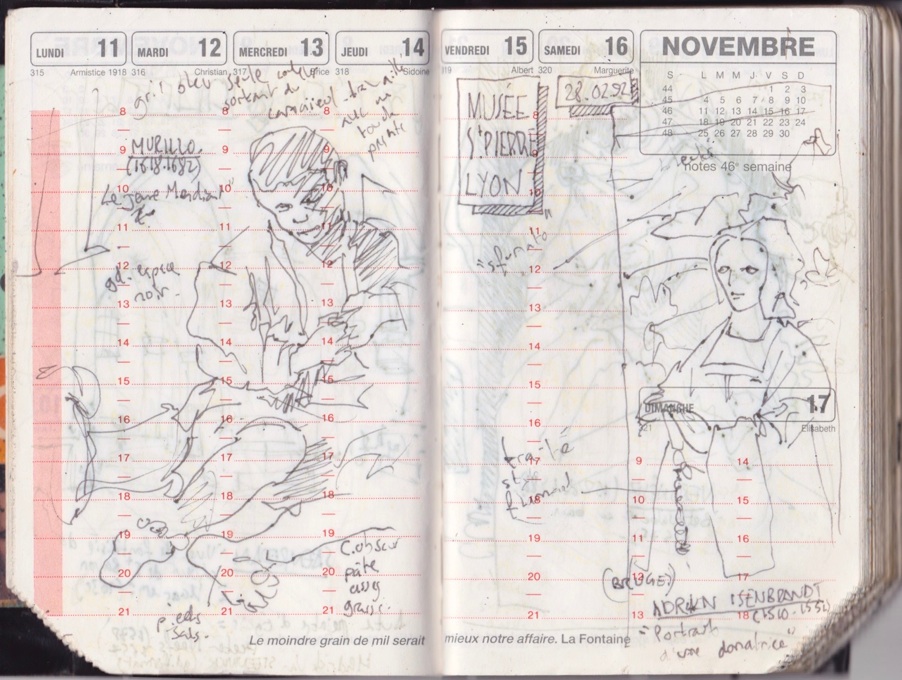 LUNDI 11
MARDI 12
MERCREDI 13
JEUDI 14
315 Armistice 1918
316 Christian
317
318 Sidoine
gris bleu seule couleur
sortant du
MURILLO.
(1618.1682)
Le Jeune Mendiant
gd. espace
noir.
8
9
10
11
12
13
14
15
16
17
18
19
20
21
C.obscur
pâte
assez
grasse.
pieds
sales.
Le moindre grain de mil serait
VENDREDI 15
SAMEDI 16
NOVEMBRE
319 Albert
320 Marguerite
MUSÉE
St PIERRE
LYON
28.02.92
S L M M J V S D
44 1 2 3
45 4 5 6 7 8 9 10
46 11 12 13 14 15 16 17
47 18 19 20 21 22 23 24
48 25 26 27 28 29 30
notes 46e semaine
"sfumato"
DIMANCHE 17
321 Elisabeth
traité
9 14
10 15
11 16
12 17
13 18
(BRUGES)
ADRIEN ISENBRANDT
(1510-1551)
"Portrait
d'une donatrice"
mieux notre affaire. La Fontaine